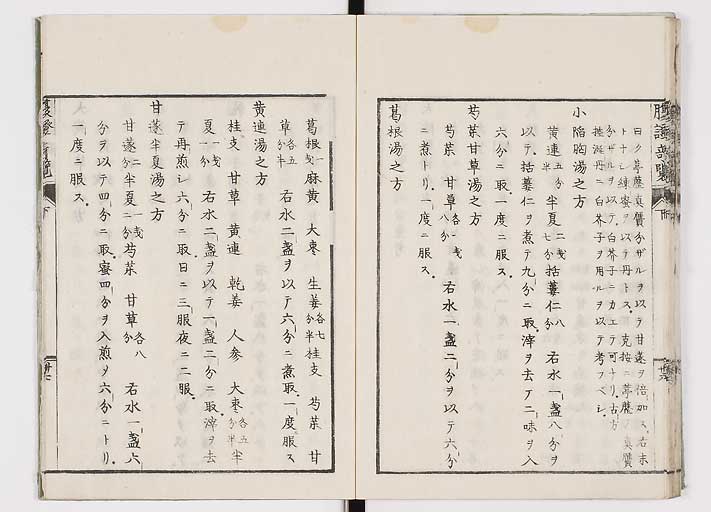 腹證奇覽 下 附 廿六
曰ク葶藶真贋分ザルヲ以テ甘遂ヲ倍加ス右末
トナシ練蜜ヲ以テ丹トス克按ニ葶藶ノ真贋
分ザルヲ以テ白芥子ニカエテ可ナリ古方
ニ白芥子ヲ用ルヲ以テ考フベシ
小陷胸湯之方
黄連五分半夏二戔七分栝蔞仁八分 右水一盞八分ヲ
以テ栝蔞仁ヲ煮テ九分ニ取滓ヲ去テ二味ヲ入
六分ニ取一度ニ服ス
芍薬甘草湯之方
芍薬 甘草各一戔八分 右水一盞二分ヲ以テ六分
ニ煮トリ一度ニ服ス
葛根湯之方
葛根一戔麻黄 大棗 生姜各七分半桂支 芍薬 甘
草各五分半 右水二盞ヲ以テ六分ニ煮取一度服ス
黄連湯之方
桂支 甘草 黄連 乾姜 人参 大棗各五分半半
夏一戔一分 右水二盞ヲ以テ一盞二分ニ取滓ヲ去
テ再煎シ六分ニ取日ニ三服夜ニ二服
甘遂半夏湯之方
甘遂二分半夏一戔二分芍薬 甘草各八分 右水一盞六
分ヲ以テ四分ニ取蜜四分ヲ入煎ヲ六分ニトリ
一度ニ服ス